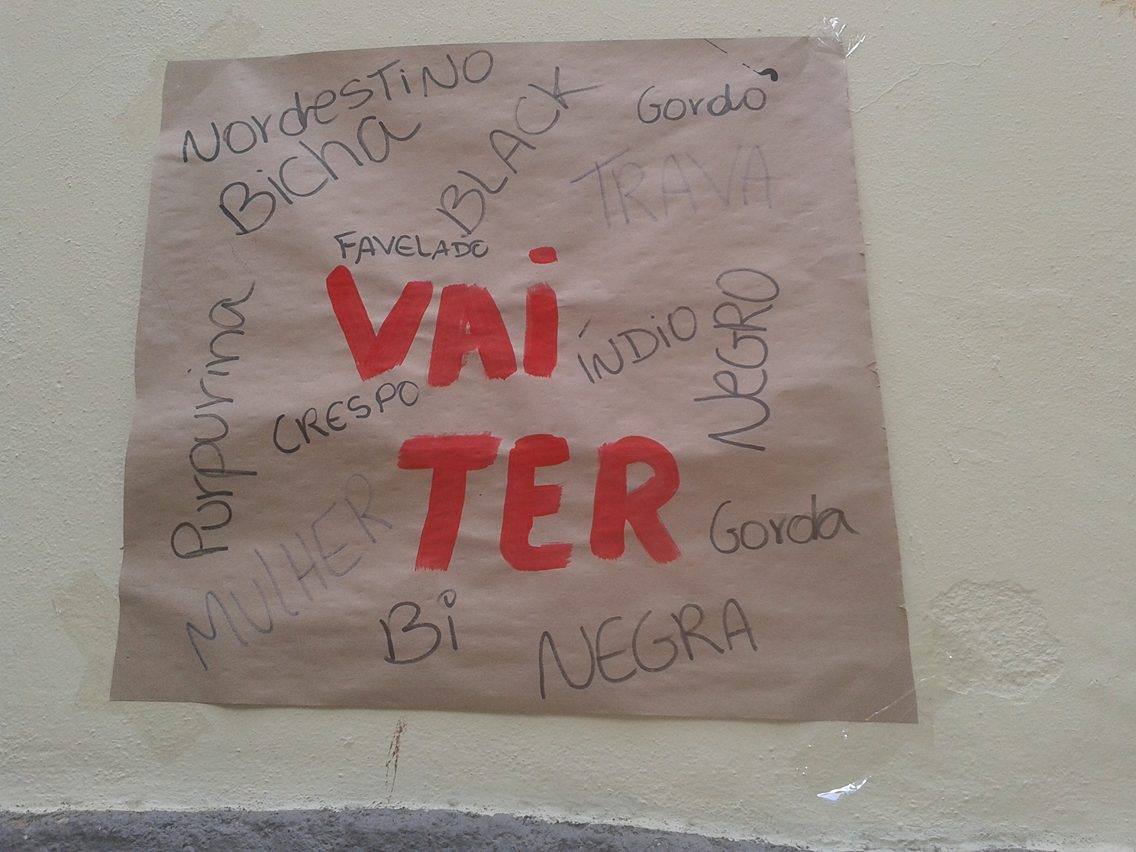 NordesTiNO
Bicha
BLACK
Gordo
TRAVA
FAVELADO
VAi
ÍNDiO
NEGRO
Purpurina
CRESPO
TER
Gorda
MULHER
Bi
NEGRA